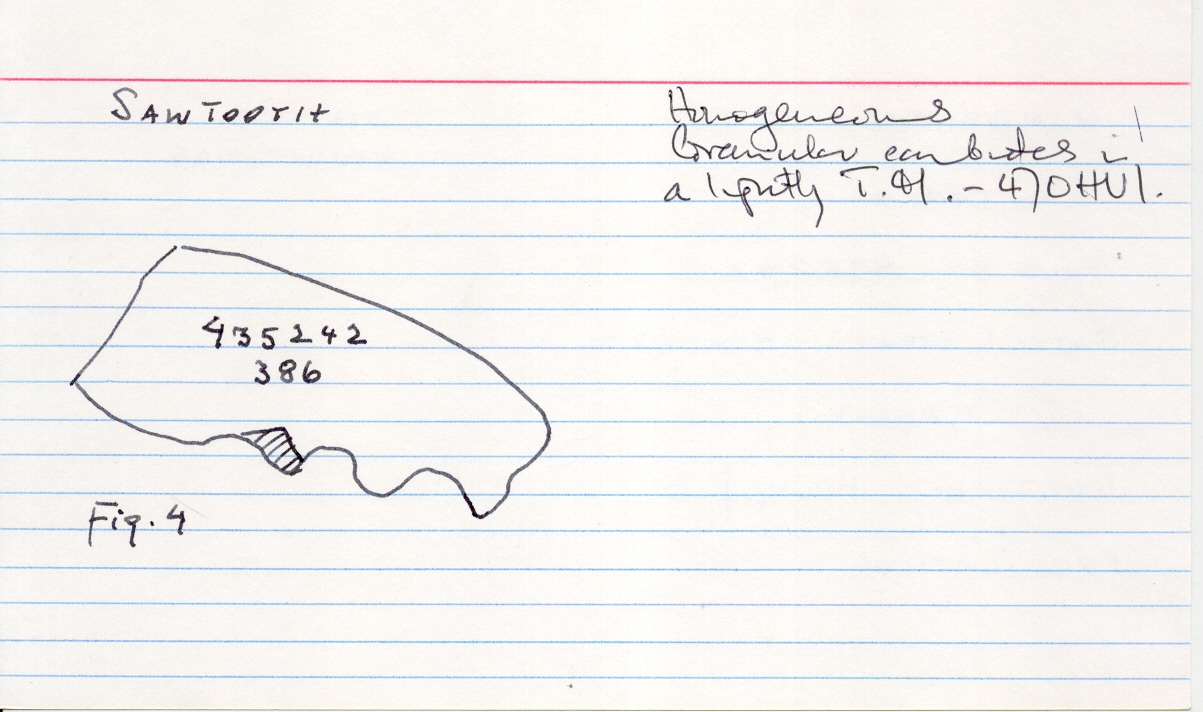 SAWTOOTH
Homogeneous
Granular carbides in
a lightly T.M. - 470HV1.
435242
386
Fig. 4